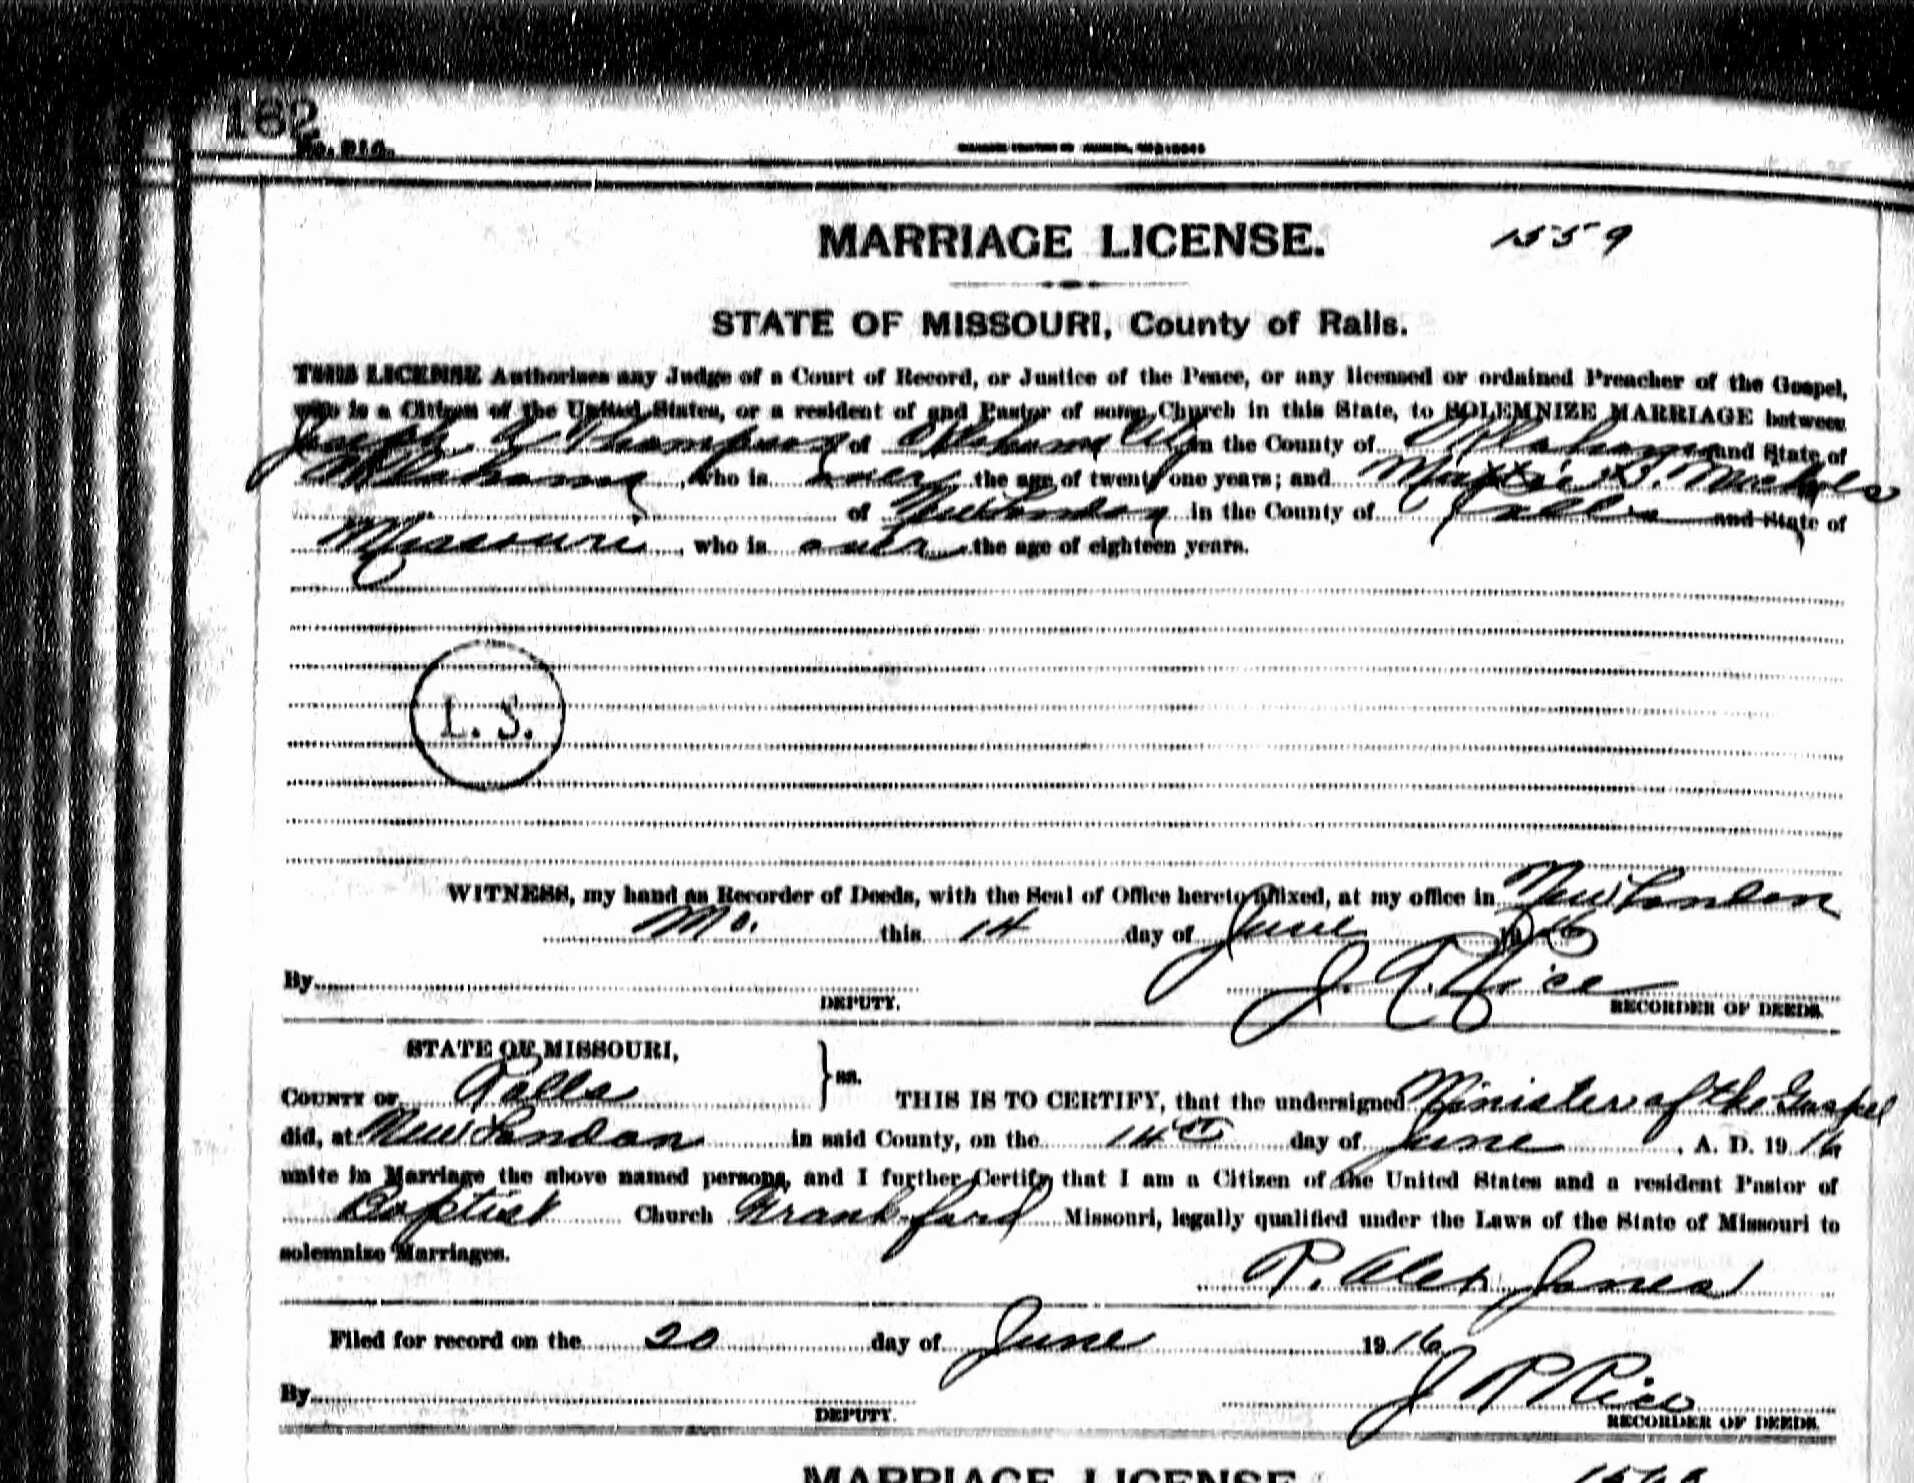 162
No. 914.
MARRIAGE LICENSE. 1559
STATE OF MISSOURI, County of Ralls.
THIS LICENSE Authorizes any Judge of a Court of Record, or Justice of the Peace, or any licensed or ordained Preacher of the Gospel,
who is a Citizen of the United States, or a resident of and Pastor of some Church in this State, to SOLEMNIZE MARRIAGE between
Joseph Thompson of Oklahoma City in the County of Oklahoma and State of
Oklahoma, who is over the age of twenty one years; and B. Nichols
of New London in the County of Ralls and State of
Missouri, who is over the age of eighteen years.
L. S.
WITNESS, my hand as Recorder of Deeds, with the Seal of Office hereto affixed, at my office in New London
Mo. this 14 day of June 1916
By J. P. Rice
DEPUTY. RECORDER OF DEEDS.
STATE OF MISSOURI,
COUNTY OF Ralls } ss. THIS IS TO CERTIFY, that the undersigned Minister of the Gospel
did, at New London in said County, on the 14th day of June, A. D. 1916
unite in Marriage the above named persons, and I further Certify that I am a Citizen of the United States and a resident Pastor of
Baptist Church Frankford Missouri, legally qualified under the Laws of the State of Missouri to
solemnize Marriages.
P. Alex Jones
Filed for record on the 20 day of June 1916
By J P Rice
DEPUTY. RECORDER OF DEEDS.
MARRIAGE LICENSE